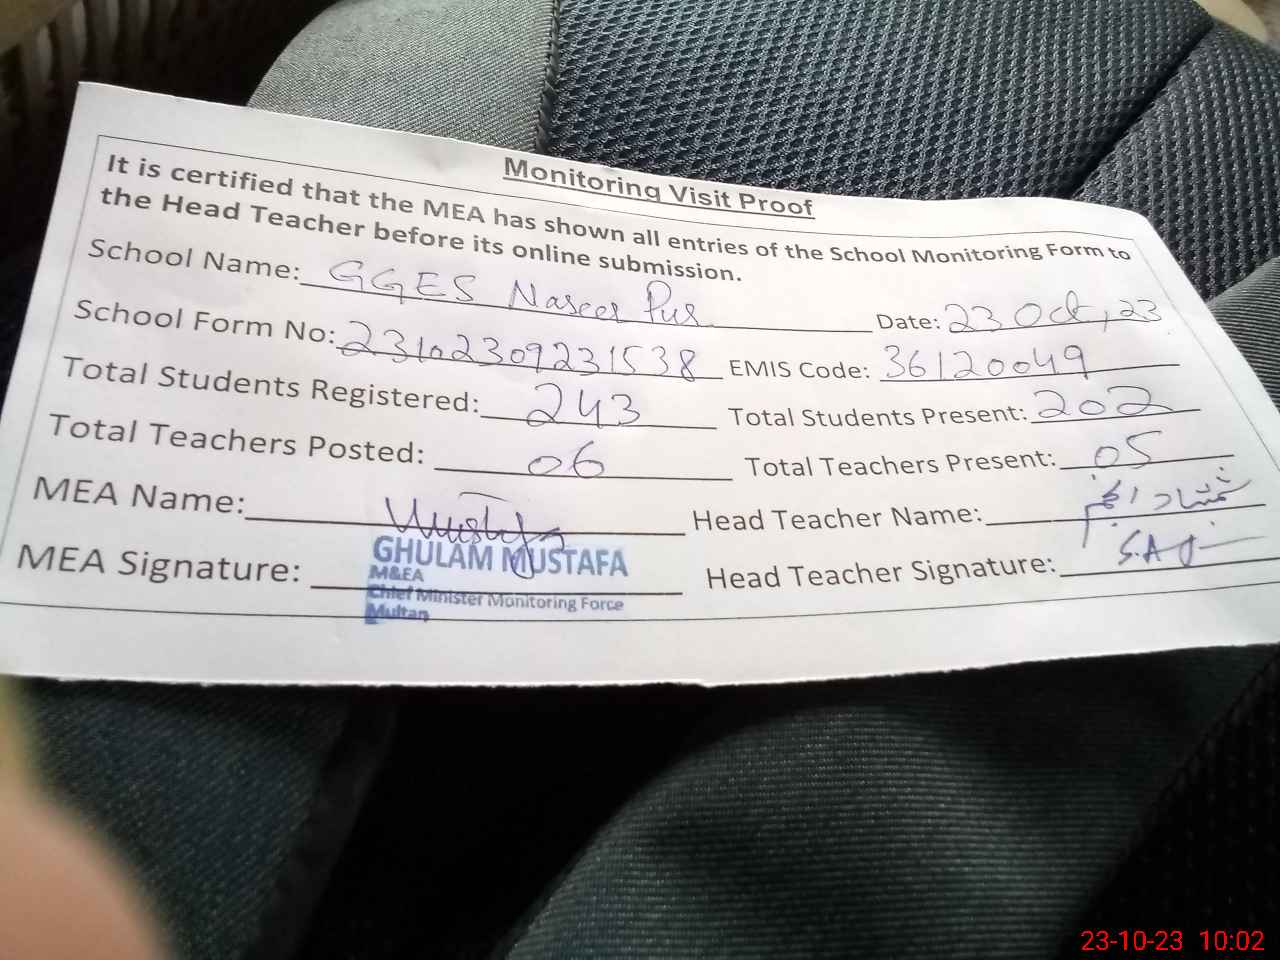 Monitoring Visit Proof
It is certified that the MEA has shown all entries of the School Monitoring Form to
the Head Teacher before its online submission.
School Name: GGES Naseer Pur Date: 23 Oct, 23
School Form No: 23102309231538 EMIS Code: 36120049
Total Students Registered: 243 Total Students Present: 202
Total Teachers Posted: 06 Total Teachers Present: 05
MEA Name: Mustafa Head Teacher Name:
GHULAM MUSTAFA
M&EA
MEA Signature: Head Teacher Signature:
Chief Minister Monitoring Force
Multan
23-10-23 10:02